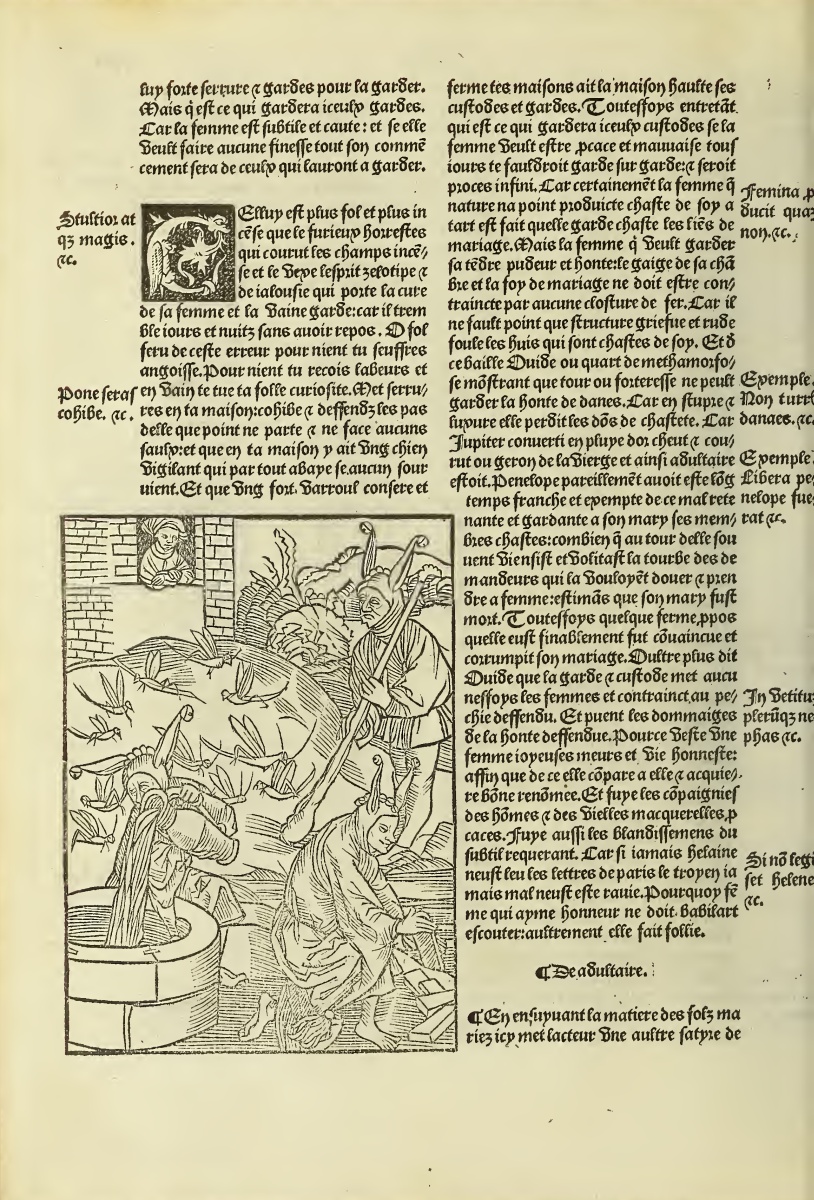 luy forte serrure ⁊ gardes pour la garder.
Mais q̃ est ce qui gardera iceulx gardes.
Car la femme est subtile et caute: et se elle
veult faire aucune finesse tout son commē
cement sera de ceulx qui lauront a garder.
Stultior at
qȝ magis.
⁊c.
Celluy est plus fol et plus in
cēse que le furieux horestes
qui courut les champs incē/
se et le vexe lesprit zelotipe ⁊
de ialousie qui porte la cure
de sa femme et la vaine garde: car il trem
ble iours et nuitz sans auoir repos. O fol
feru de ceste erreur pour nient tu seuffres
angoisse. Pour nient tu recois labeurs et
Pone seras
cohibe. ⁊c.
en vain te tue ta folle curiosite. Met serru/
res en ta maison: cohibe ⁊ deffendȝ les pas
delle que point ne parte ⁊ ne face aucuns
saulx: et que en ta maison y ait vng chien
vigilant qui par tout abaye se aucun sour
uient. Et que vng fort varroul consere et
ferme tes maisons ait la maison haulte ses
custodes et gardes. Touteffoys entretāt
qui est ce qui gardera iceulx custodes se la
femme veult estre ꝓcace et mauuaise tous
iours te fauldroit garde sur garde: ⁊ seroit
proces infini. Car certainemēt la femme q̃
nature na point produicte chaste de soy a
tart est fait quelle garde chaste les liēs de
mariage. Mais la femme q̃ veult garder
sa tēdre pudeur et honte: le gaige de sa chā
bre et la foy de mariage ne doit estre con/
traincte par aucune closture de fer. Car il
ne fault point que structure griefue et rude
foule les huis qui sont chastes de soy. Et d
ce baille Ouide ou quart de methamorfo/
se mōstrant que tour ou forteresse ne peult
garder la honte de danes. Car en stupre ⁊
luxure elle perdit les dōs de chastete. Car
Jupiter conuerti en pluye dor cheut ⁊ cou/
rut ou geron de la vierge et ainsi adultaire
estoit. Penelope pareillemēt auoit este lōg
temps franche et exempte de ce mal rete
nante et gardante a son mary ses mem/
bres chastes: combien q̃ au tour delle sou
uent viensist et volitast la tourbe des de
mandeurs qui la vouloyēt douer ⁊ pren
dre a femme: estimās que son mary fust
mort. Touteffoys quelque ferme ꝓpos
quelle eust finablement fut cōuaincue et
corrumpit son mariage. Oultre plus dit
Ouide que la garde ⁊ custode met aucu
neffoys les femmes et contrainct au pe/
chie deffendu. Et puent les dommaiges
de la honte deffendue. Pource veste vne
femme ioyeuses meurs et vie honneste:
affin que de ce elle cōpare a elle ⁊ acquie/
re bōne renōmee. Et fuye les cōpaignies
des hōmes ⁊ des vielles macquerelles ꝓ
caces. Fuye aussi les blandissemens du
subtil requerant. Car si iamais helaine
neust leu les lettres de paris le troyen ia
mais mal neust este rauie. Pourquoy fē
me qui ayme honneur ne doit babilart
escouter: aultrement elle fait follie.
Femina ꝓ
ducit quaȝ
non. ⁊c.
Exemple.
Non turri
danaes. ⁊c.
Exemple
Libera pe
nelope fue
rat ⁊c.
In vetitu
plerūqȝ ne
phas ⁊c.
Si nō legi
set helene
⁊c.
¶ De adultaire.
¶ En ensuyuant la matiere des folȝ ma
rieȝ icy met lacteur vne aultre satyre de